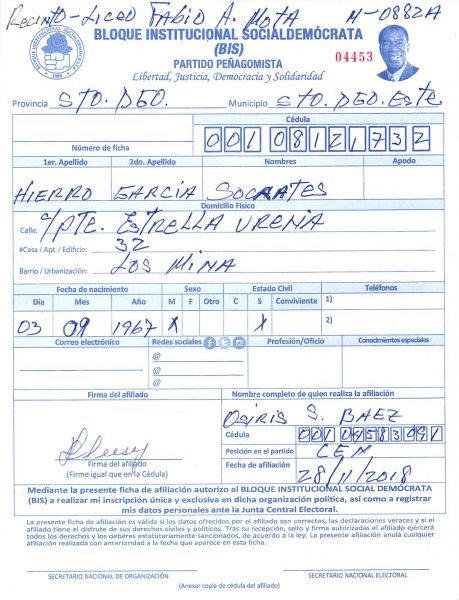 Recinto-Liceo Fabio A. Mota M-0882A
BLOQUE INSTITUCIONAL SOCIALDEMÓCRATA
(BIS)
PARTIDO PEÑAGOMISTA
04453
Libertad, Justicia, Democracia y Solidaridad
Provincia STO. DGO. Municipio STO. DGO. ESTE
Cédula
Número de ficha 001 0812173 2
1er. Apellido 2do. Apellido Nombres Apodo
HIERRO GARCIA SOCRATES
Domicilio Físico
Calle: C/PTE. ESTRELLA UREÑA
#Casa / Apt. / Edificio: 32
Barrio / Urbanización: LOS MINA
Fecha de nacimiento Sexo Estado Civil Teléfonos
Día Mes Año M F Otro C S Conviviente 1)
03 09 1967 X X 2)
Correo electrónico Redes sociales Profesión/Oficio Conocimientos especiales
@
@
@
Firma del afiliado Nombre completo de quien realiza la afiliación
OSIRIS S. BAEZ
Cédula
Firma del afiliado Posición en el partido CEN
(Firme igual que en la Cédula) Fecha de afiliación 28/11/2018
Mediante la presente ficha de afiliación autorizo al BLOQUE INSTITUCIONAL SOCIAL DEMÓCRATA
(BIS) a realizar mi inscripción única y exclusiva en dicha organización política, así como a registrar
mis datos personales ante la Junta Central Electoral.
La presente ficha de afiliación es válida si los datos ofrecidos por el afiliado son correctos, las declaraciones veraces y si el
afiliado tiene el disfrute de sus derechos civiles y políticos. Tras su recepción, sello y firma autorizadas el afiliado ejercerá
todos los derechos y los deberes estatutariamente sancionados, de acuerdo a la ley. La presente afiliación anula cualquier
afiliación realizada con anterioridad a la fecha que aparece en esta ficha.
SECRETARIO NACIONAL DE ORGANIZACIÓN SECRETARIO NACIONAL ELECTORAL
(Anexar copia de cédula del afiliado)